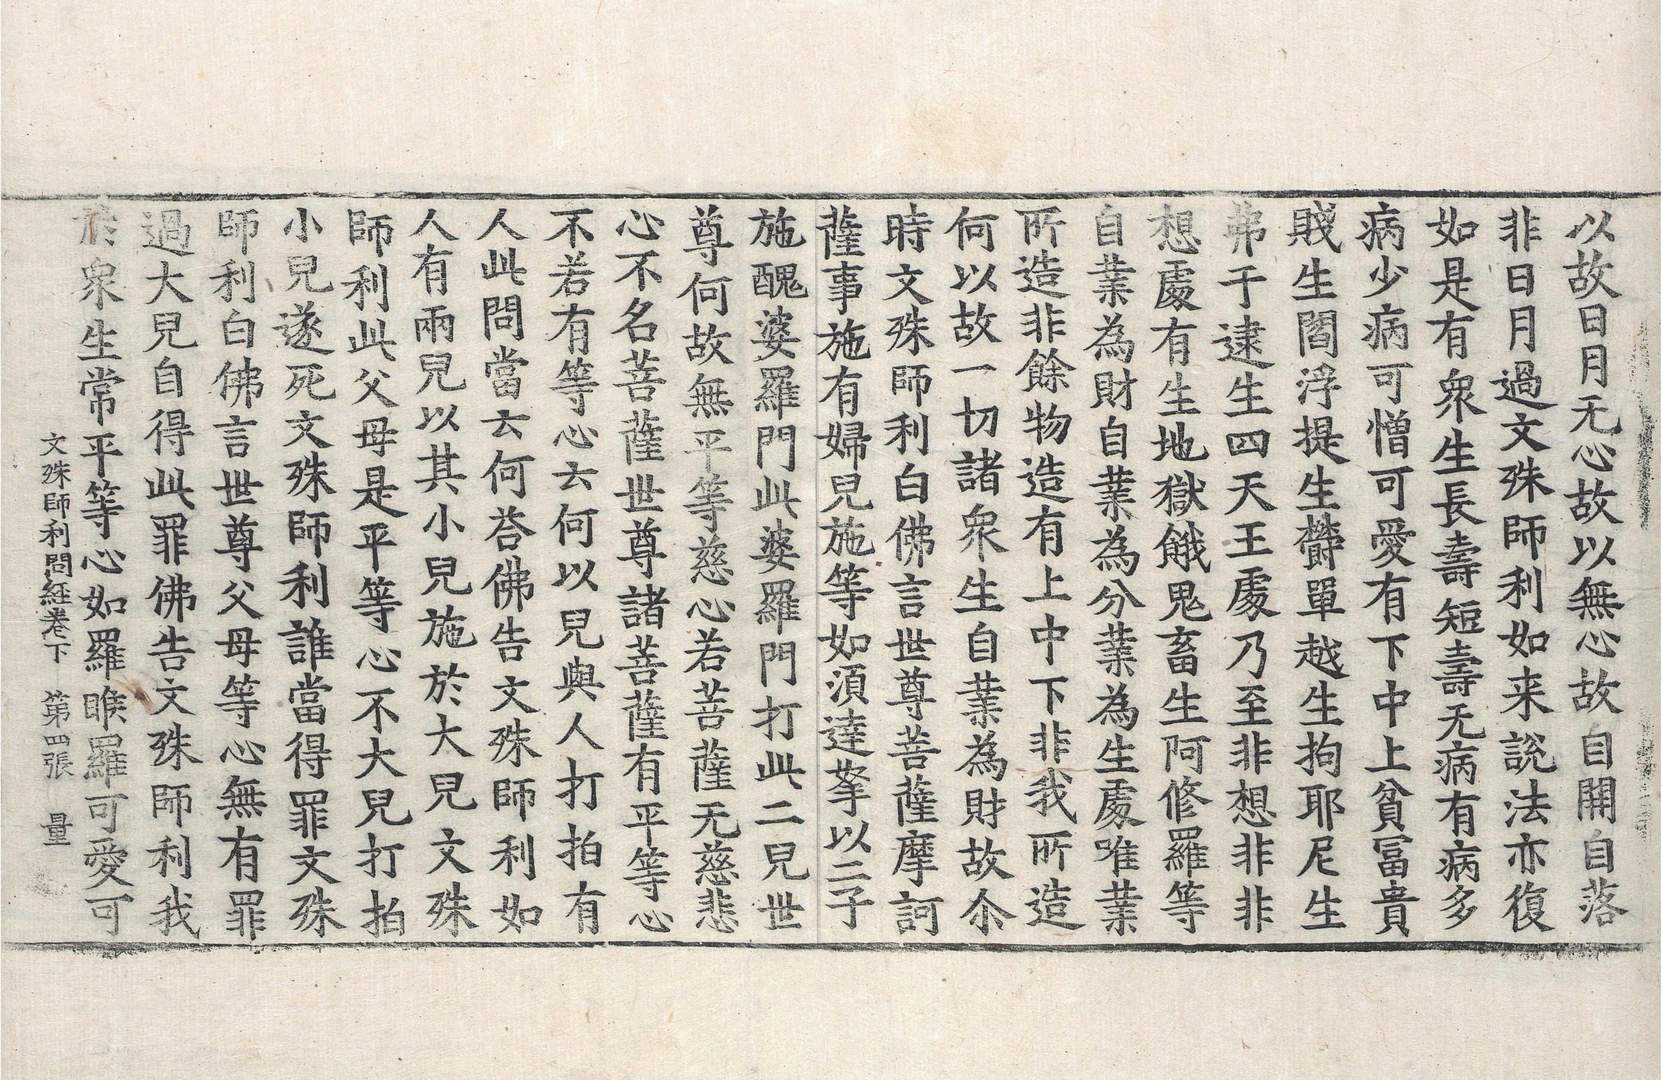 以故日月无心故以無心故自開自落
非日月過文殊師利如来說法亦復
如是有眾生長壽短壽无病有病多
病少病可憎可愛有下中上貧冨貴
賤生閻浮提生欝單越生拘耶尼生
弗于逮生四天王䖏乃至非想非非
想䖏有生地獄餓鬼畜生阿修羅等
自業為財自業為分業為生䖏唯業
所造非餘物造有上中下非我所造
何以故一切諸眾生自業為財故尒
時文殊師利白佛言世尊菩薩摩訶
薩事施有婦兒施等如湏達拏以二子
施醜婆羅門此婆羅門打此二兒世
尊何故無平等慈心若菩薩无慈悲
心不名菩薩世尊諸菩薩有平等心
不若有等心云何以兒與人打拍有
人此問當云何荅佛告文殊師利如
人有兩兒以其小兒施於大兒文殊
師利此父母是平等心不大兒打拍
小兒遂死文殊師利誰當得罪文殊
師利白佛言世尊父母等心無有罪
過大兒自得此罪佛告文殊師利我
於眾生常平等心如羅睺羅可愛可
文殊師利問経卷下 第四張 量